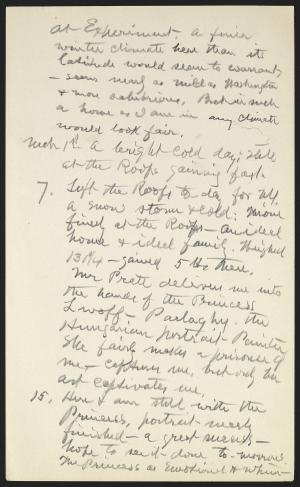 at Experiment. A finer
winter climate here than its
latitude would seem to warrant
— seems nearly as mild as Washington
& more salubrious. But in such
a home as I am in any climate
would look fair.
Mch 1st. A bright cold day; still
at the Roofs gaining fast.
7. Left the Roofs to day for N.Y.
a snow storm & cold; More
finely at the Roofs — an ideal
home & ideal family. Weighed
134 — gained 5 lbs there.
Mr Pratt delivers me into
the hands of the Princess
Lwoff-Parlaghy, the
Hungarian portrait Painter
She fairly makes a prisoner of
me — captures me, but only her
art captivates me.
15. Here I am still with the
Princess, portrait nearly
finished — a great success —
hope to see it done to-morrow.
The Princess is emotional &